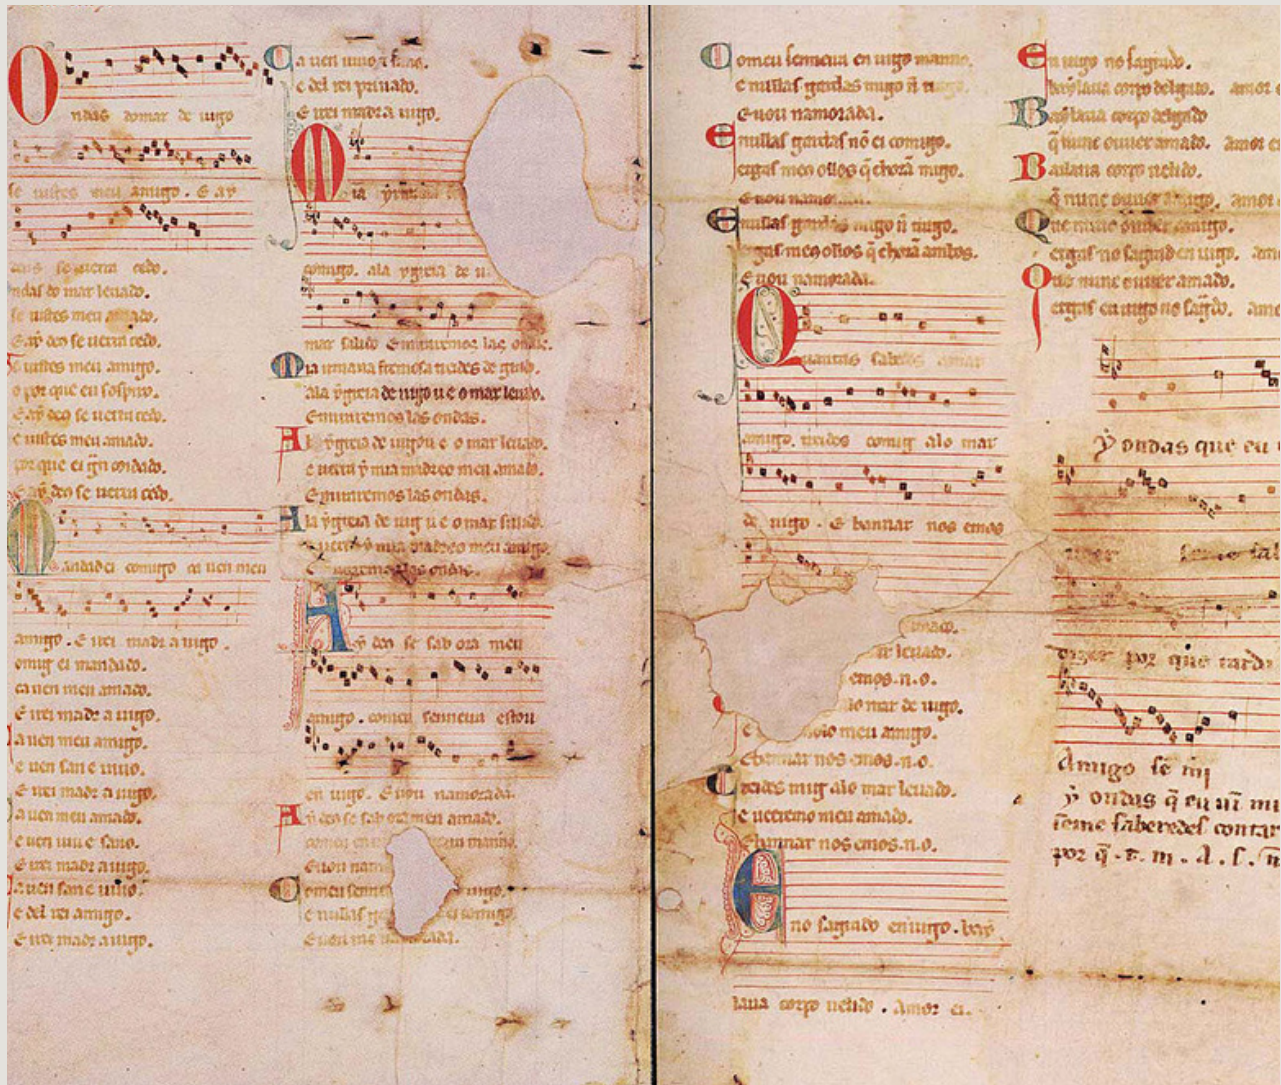 Ondas do mar de uigo
se uistes meu amigo. E ay
deus se uerra cedo.
ndas do mar leuado.
se uistes meu amado.
E ay deꝯ se uerra cedo.
uistes meu amigo.
o por que eu sospiro.
E ay deꝯ se uerra cedo.
e uistes meu amado.
por que ei gñ coidado.
E ay deꝯ se uerra cedo.
Mandad ei comigo ca uen meu
amigo. E irei madr a uigo.
omig ei mandado.
ca uen meu amado.
E irei madr a uigo.
a uen meu amigo.
e uen san e uiuo.
E irei madr a uigo.
a uen meu amado.
e uen uiu e sano.
E irei madr a uigo.
a uen san e uiuo.
e del rei amigo.
E irei madr a uigo.
Ca uen uiuo e sano.
e del rei priuado.
E irei madr a uigo.
Mia
comigo. ala ygreia de u
mar salido E miraremos las ondas.
Mia irmana fremosa treides de grado.
ala ygreia de uigo u e o mar leuado.
E miraremos las ondas.
Ala ygreia de uigo u e o mar leuado.
e uerra y mia madre o meu amado.
E miraremos las ondas.
Ala ygreia de uig u e o mar salido.
e uerra y mia madre o meu amigo.
E miraremos las ondas.
Ay deꝯ se sab ora meu
amigo. comeu senneira estou
en uigo. E uou namorada.
Ay deꝯ se sab ora meu amado.
comeu en manno.
E uou nam
Comeu senn uigo.
e nullas g ei comigo.
E uou namorada.
Comeu senneira en uigo manno.
e nullas gardas migo ñ
E uou namorada.
E nullas gardas nō ei comigo.
ergas meꝯ ollos q̄ chorā migo.
E uou namorada.
E nullas gardas migo ñ
ergas meꝯ ollos q̄ chorā ambos.
E uou namorada.
Quantas sabedes amar
amigo. treides comig alo mar
de uigo. E bannar nos emos
leuado.
emos .n.o.
lo mar de uigo.
e meu amigo.
E bannar nos emos .n.o.
Treides mig alo mar leuado.
e ueeremo meu amado.
E bannar nos emos .n.o.
Eno sagrado en uigo. bay
laua corpo uelido. Amor ei.
En uigo no sagrado.
baylaua corpo delgado. amor e
Baylaua corpo delgado
q̄ nunc ouuer amado. amor ei
Bailaua corpo uelido.
q̄ nunc ouuer amigo. amor
Que nunc ouuer amigo.
ergas no sagrad en uigo. am
Que nunc ouuer amado.
ergas en uigo no sagrado. am
y ondas que eu
dizer por que tarda
Amigo sē mī
y ondas q̄ eu uī mi
seme saberedes contar
por q̄ .t. m. A. s. m